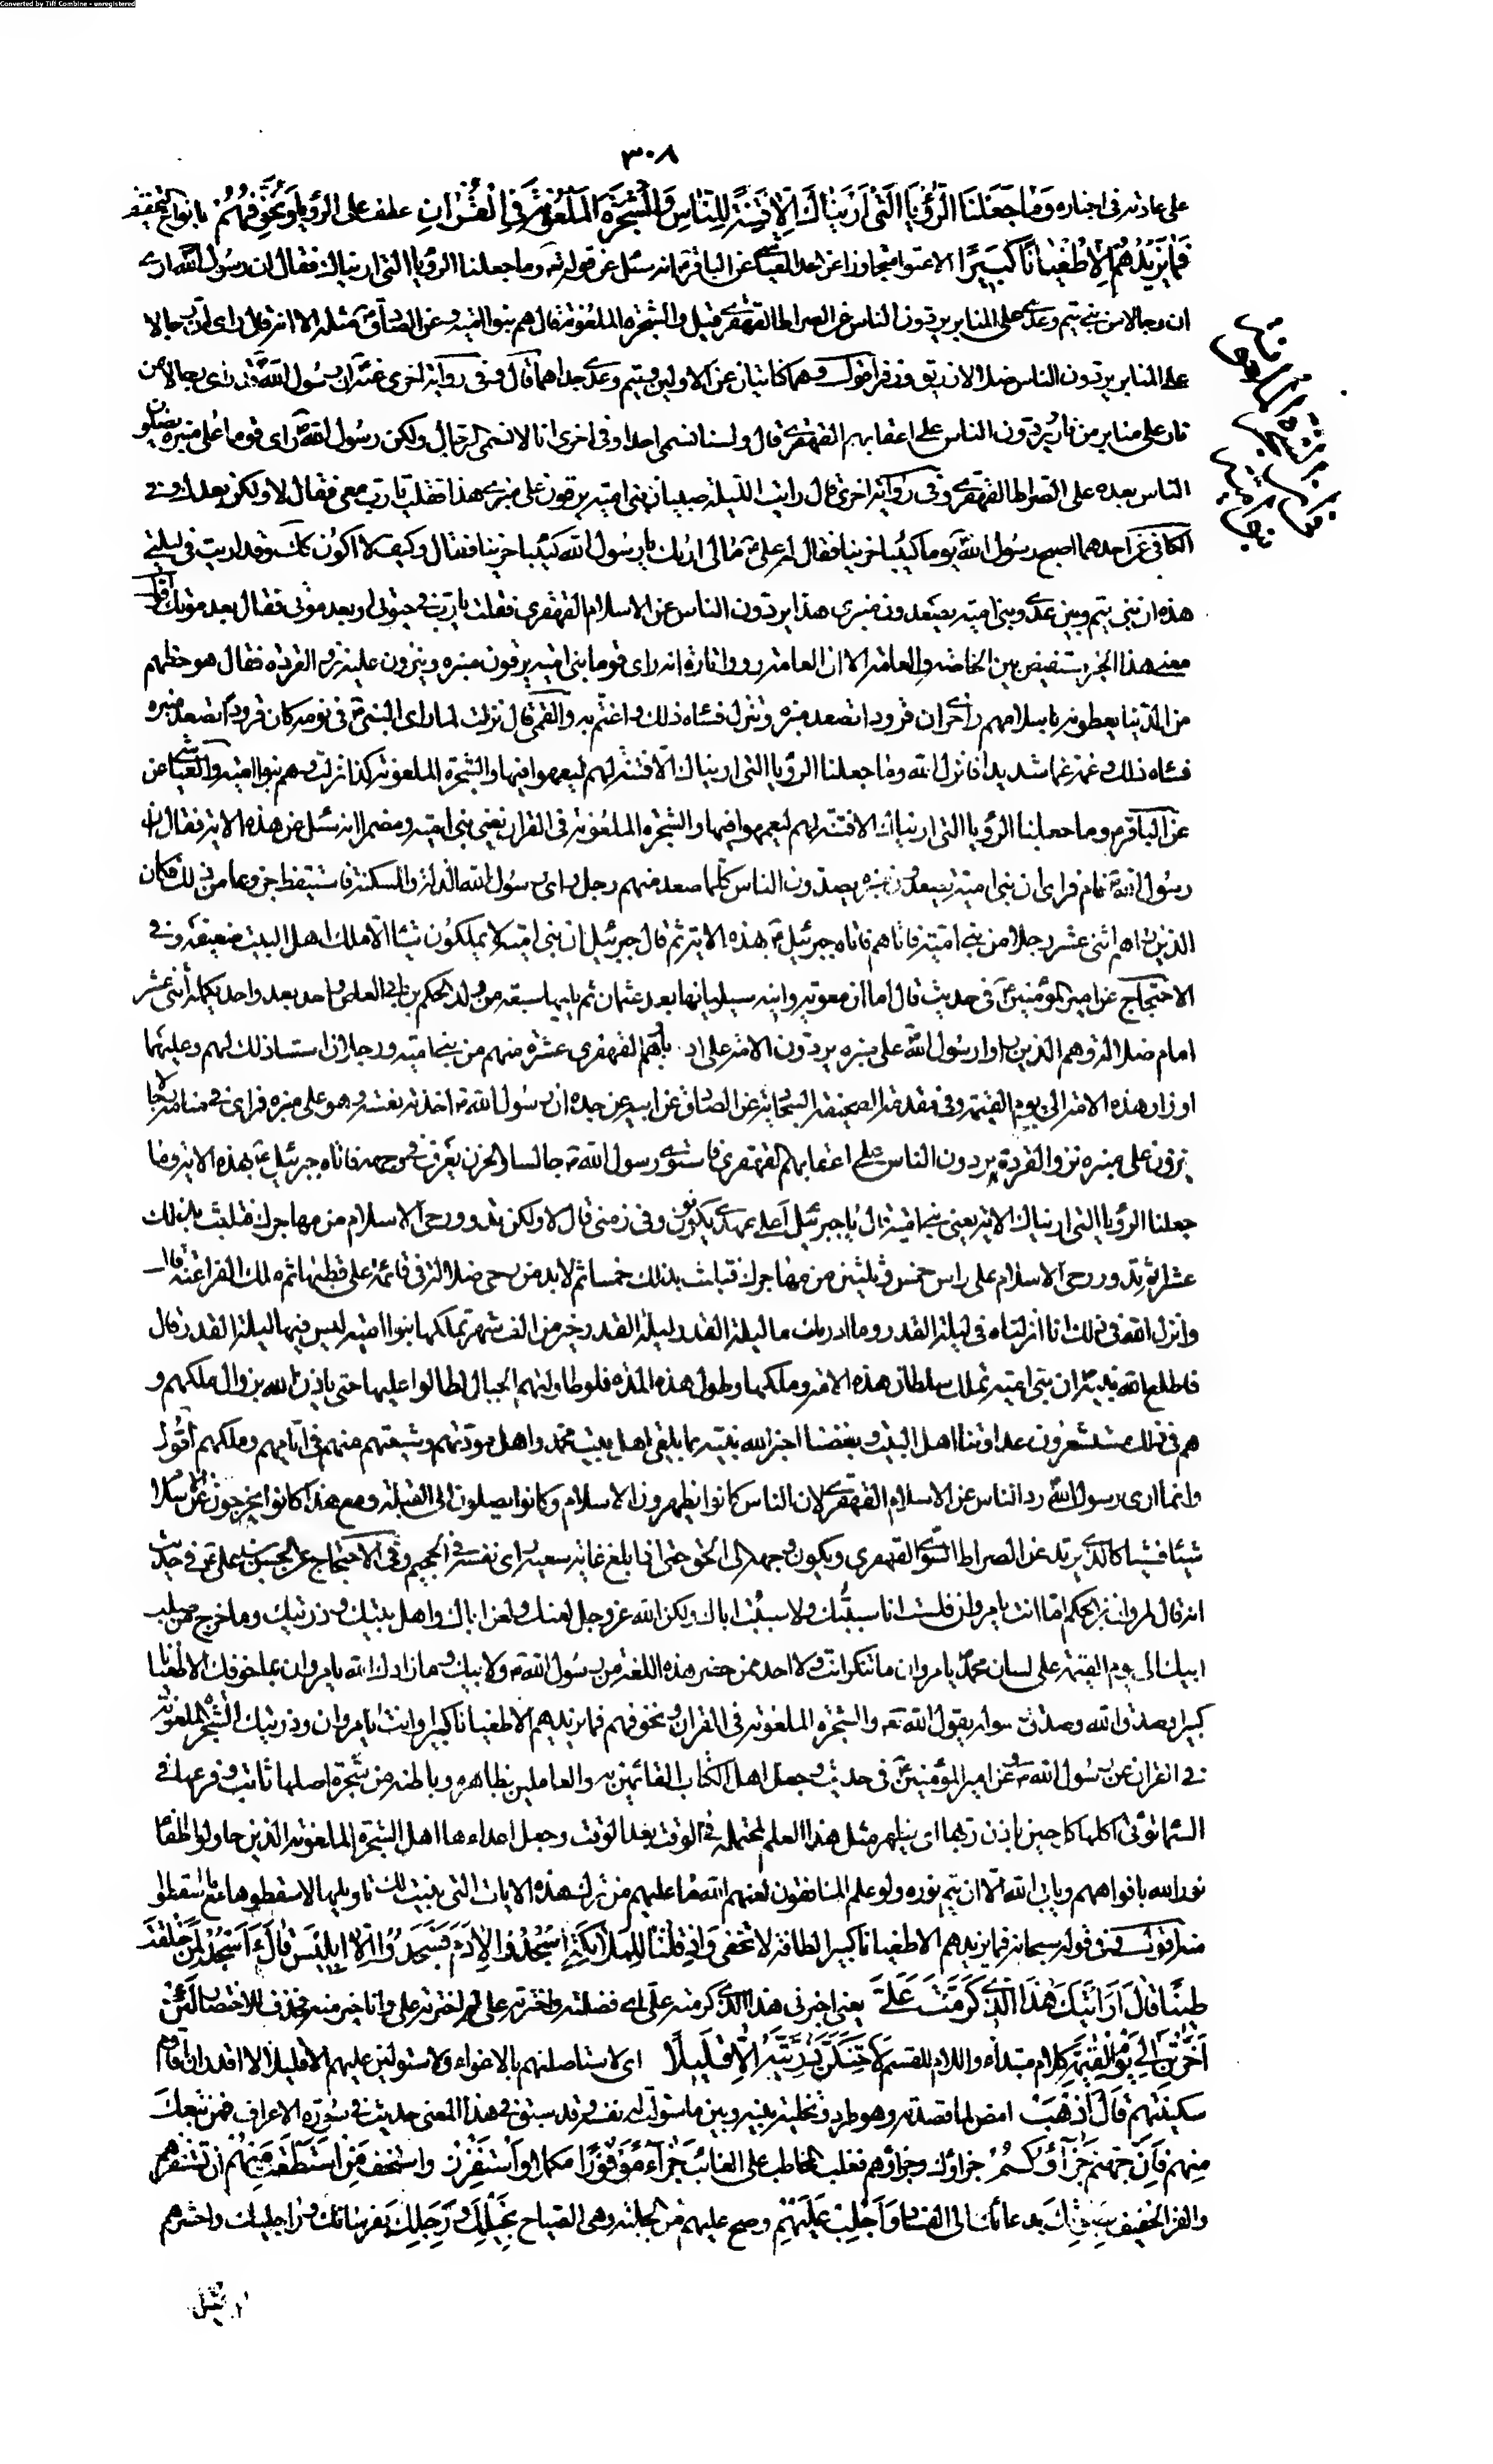 Converted by Tiff Combine - unregistered
٣٠٨
على عادته فى اخباره وَمَا جَعَلْنَا الرُّؤْيَا الَّتى اَرَيْنَاكَ اِلاّ فِتْنَةً لِلنّاسِ وَالشَّجَرَةَ الْمَلْعُونَةَ فِى الْقُرْانِ عطف على الرؤيا وَنُخَوِّفُهُمْ بانواع التخويف
فَمَا يَزيدُهُمْ اِلاّ طُغْيَانًا كَبيرًا الا عتوا متجاوزا عن الحد العياشى عن الباقر انه سئل عن قوله تع وما جعلنا الرؤيا التى اريناك فقال ان رسول الله ارى
ان رجالا من بنى تيم وعدى على المنابر يردون الناس عن الصراط القهقرى قيل والشجرة الملعونة قال هم بنو امية وعن الصادق مثله الا انه قال راى ان رجالا
على المنابر يردون الناس ضلالا زريق وزفر اقول وهما كنايتان عن الاولين وتيم وعدى جداهما قال وفى رواية اخرى عنه ان رسول الله قد راى رجالا من
نار على منابر من نار يردون الناس على اعقابهم القهقرى قال ولسنا نسمى احدا وفى اخرى انا لا نسمى الرجال ولكن رسول الله راى قوما على منبره يضلون
الناس بعده على الصراط القهقرى وفى رواية اخرى قال رايت الليلة صبيان بنى امية يرقون على منبرى هذا فقلت يا رب معى فقال لا ولكن بعدك وفى
الكافى عن احدهما اصبح رسول الله يوما كئيبا حزينا فقال له على مالى اراك يا رسول الله كئيبا حزينا فقال وكيف لا اكون كذلك وقد اريت فى ليلتى
هذه ان بنى تيم وبنى عدى وبنى امية يصعدون منبرى هذا يردون الناس عن الاسلام القهقرى فقلت يا رب فى حيوتى او بعد موتى فقال بعد موتك اقول
معنى هذا الخبر مستفيض بين الخاصة والعامة الا ان العامة رووا تارة انه راى قوما بنى امية يرقون منبره وينزون عليه نزو القردة فقال هو حظهم
من الدنيا يعطونه باسلامهم واخرى ان قرودا تصعد منبره وتنزل فساءه ذلك واغتم به والقمى قال نزلت لما راى النبى فى نومه كان قرودا تصعد منبره
فساءه ذلك وغمه غما شديدا فانزل الله وما جعلنا الرؤيا التى اريناك الا فتنة لهم ليعمهوا فيها والشجرة الملعونة كذا نزلت وهم بنو امية والعياشى عن
عن الباقر وما جعلنا الرؤيا التى اريناك الا فتنة لهم ليعمهوا فيها والشجرة الملعونة فى القران يعنى بنى امية ومضمرا انه سئل عن هذه الاية فقال ان
رسول الله نام فراى ان بنى امية يصعدون منبره يصدون الناس كلما صعد منهم رجل راى رسول الله الذلة والمسكنة فاستيقظ جزوعا من ذلك فكان
الذين راهم اثنى عشر رجلا من بنى امية فاتاه جبرئيل بهذه الاية ثم قال جبرئيل ان بنى امية لا يملكون شيئا الا ملك اهل البيت ضعيفه وفى
الاحتجاج عن امير المؤمنين فى حديث قال اما ان معوية وابنه سيليانها بعد عثمان ثم يليها سبعة من ولد الحكم بن ابى العاص واحد بعد واحد تكملة اثنى عشر
امام ضلالة وهم الذين راى رسول الله على منبره يردون الامة على ادبارهم القهقرى عشرة منهم من بنى امية ورجلان اسسا ذلك لهم وعليهما
اوزار هذه الامة الى يوم القيمة وفى مقدمة الصحيفة السجادية عن الصادق عن ابيه عن جده ان رسول الله اخذته نعسة وهو على منبره فراى فى منامه رجالا
ينزون على منبره نزو القردة يردون الناس على اعقابهم القهقرى فاستوى رسول الله جالسا والحزن يعرف فى وجهه فاتاه جبرئيل بهذه الاية وما
جعلنا الرؤيا التى اريناك الاية يعنى بنى امية قال يا جبرئيل اعلى عهدى يكونون وفى زمنى قال لا ولكن تدور رحى الاسلام من مهاجرك فتلبث بذلك
عشرا ثم تدور رحى الاسلام على راس خمس وثلثين من مهاجرك فتلبث بذلك خمسا ثم لابد من رحى ضلالة هى قائمة على قطبها ثم ملك الفراعنة قال
وانزل الله فى ذلك انا انزلناه فى ليلة القدر وما ادريك ما ليلة القدر ليلة القدر خير من الف شهر تملكها بنو امية ليس فيها ليلة القدر قال
فاطلع الله نبيه ان بنى امية تملك سلطان هذه الامة وملكها وطول هذه المدة فلو طاولتهم الجبال لطالوا عليها حتى ياذن الله بزوال ملكهم و
هم فى ذلك مستشعرون عداوتنا اهل البيت وبغضنا اخبر الله نبيه بما يلقى اهل بيت محمد واهل مودتهم وشيعتهم منهم فى ايامهم وملكهم اقول
وانما ارى رسول الله رد الناس عن الاسلام القهقرى لان الناس كانوا يظهرون الاسلام وكانوا يصلون الى القبلة ومع هذا كانوا يخرجون من الاسلام
شيئا فشيئا كالذى يرتد عن الصراط السوى القهقرى ويكون وجهه الى الحق حتى اذا بلغ غاية سعيه راى نفسه فى الجحيم وفى الاحتجاج عن الحسن بن على فى حديث
انه قال لمروان بن الحكم اما انت يا مروان فلست انا سببتك ولا سببت اباك ولكن الله عز وجل لعنك ولعن اباك واهل بيتك وذريتك وما خرج من صلب
ابيك الى يوم القيمة على لسان محمد يا مروان ما تنكر انت ولا احد ممن حضر هذه اللعنة من رسول الله ولابيك وما زادك الله يا مروان بما خوفك الا طغيانا
كبيرا وصدق الله وصدق رسوله يقول الله تع والشجرة الملعونة فى القران ونخوفهم فما يزيدهم الا طغيانا كبيرا وانت يا مروان وذريتك الشجرة الملعونة
فى القران عن رسول الله وعن امير المؤمنين فى حديث وجعل اهل الكتاب القائمين به والعاملين بظاهره وباطنه من شجرة اصلها ثابت وفرعها فى
السماء تؤتى اكلها كل حين باذن ربها اى يظهر مثل هذا العلم لمحتمليه فى الوقت بعد الوقت وجعل اعداءها اهل الشجرة الملعونة الذين حاولوا اطفاء
نور الله بافواههم ويابى الله الا ان يتم نوره ولو علم المنافقون لعنهم الله ما عليهم من ترك هذه الايات التى بينت لك تاويلها لاسقطوها مع ما اسقطوا
منه اقول وفى قوله سبحانه فما يزيدهم الا طغيانا كبيرا لطافة لا تخفى وَاِذْ قُلْنَا لِلْمَلائِكَةِ اسْجُدُوا لِاٰدَمَ فَسَجَدُوا اِلاّ اِبْليسَ قَالَ ءَاَسْجُدُ لِمَنْ خَلَقْتَ
طينًا قَالَ اَرَاَيْتَكَ هٰذَا الَّذى كَرَّمْتَ عَلَىَّ يعنى اخبرنى هذا الذى كرمته على اى فضلته واخترته على لم اخترته على وانا خير منه فحذف للاختصار لَئِنْ
اَخَّرْتَنِ اِلى يَوْمِ الْقِيٰمَةِ كلام مبتداء واللام للقسم لَاَحْتَنِكَنَّ ذُرِّيَّتَهُ اِلاّ قَليلًا اى لاستاصلنهم بالاغواء ولاستولين عليهم الا قليلا لا اقدر ان اقاوم
سكينتهم قَالَ اذْهَبْ امض لما قصدته وهو طرد وتخلية بينه وبين ما سولت له نفسه وقد سبق فى هذا المعنى حديث فى سورة الاعراف فمن تَبِعَكَ
مِنْهُمْ فَاِنَّ جَهَنَّمَ جَزَاؤُكُمْ جزاؤك وجزاؤهم فغلب المخاطب على الغائب جَزَاءً مَوْفُورًا مكملا وَاسْتَفْزِزْ واستخف مَنِ اسْتَطَعْتَ مِنْهُمْ ان تستفزهم
والفز الخفيف بِصَوْتِكَ بدعائك الى الفساد وَاَجْلِبْ عَلَيْهِمْ وصح عليهم من الجلبة وهى الصياح بِخَيْلِكَ وَرَجِلِكَ بفرسانك وراجليك واحشرهم